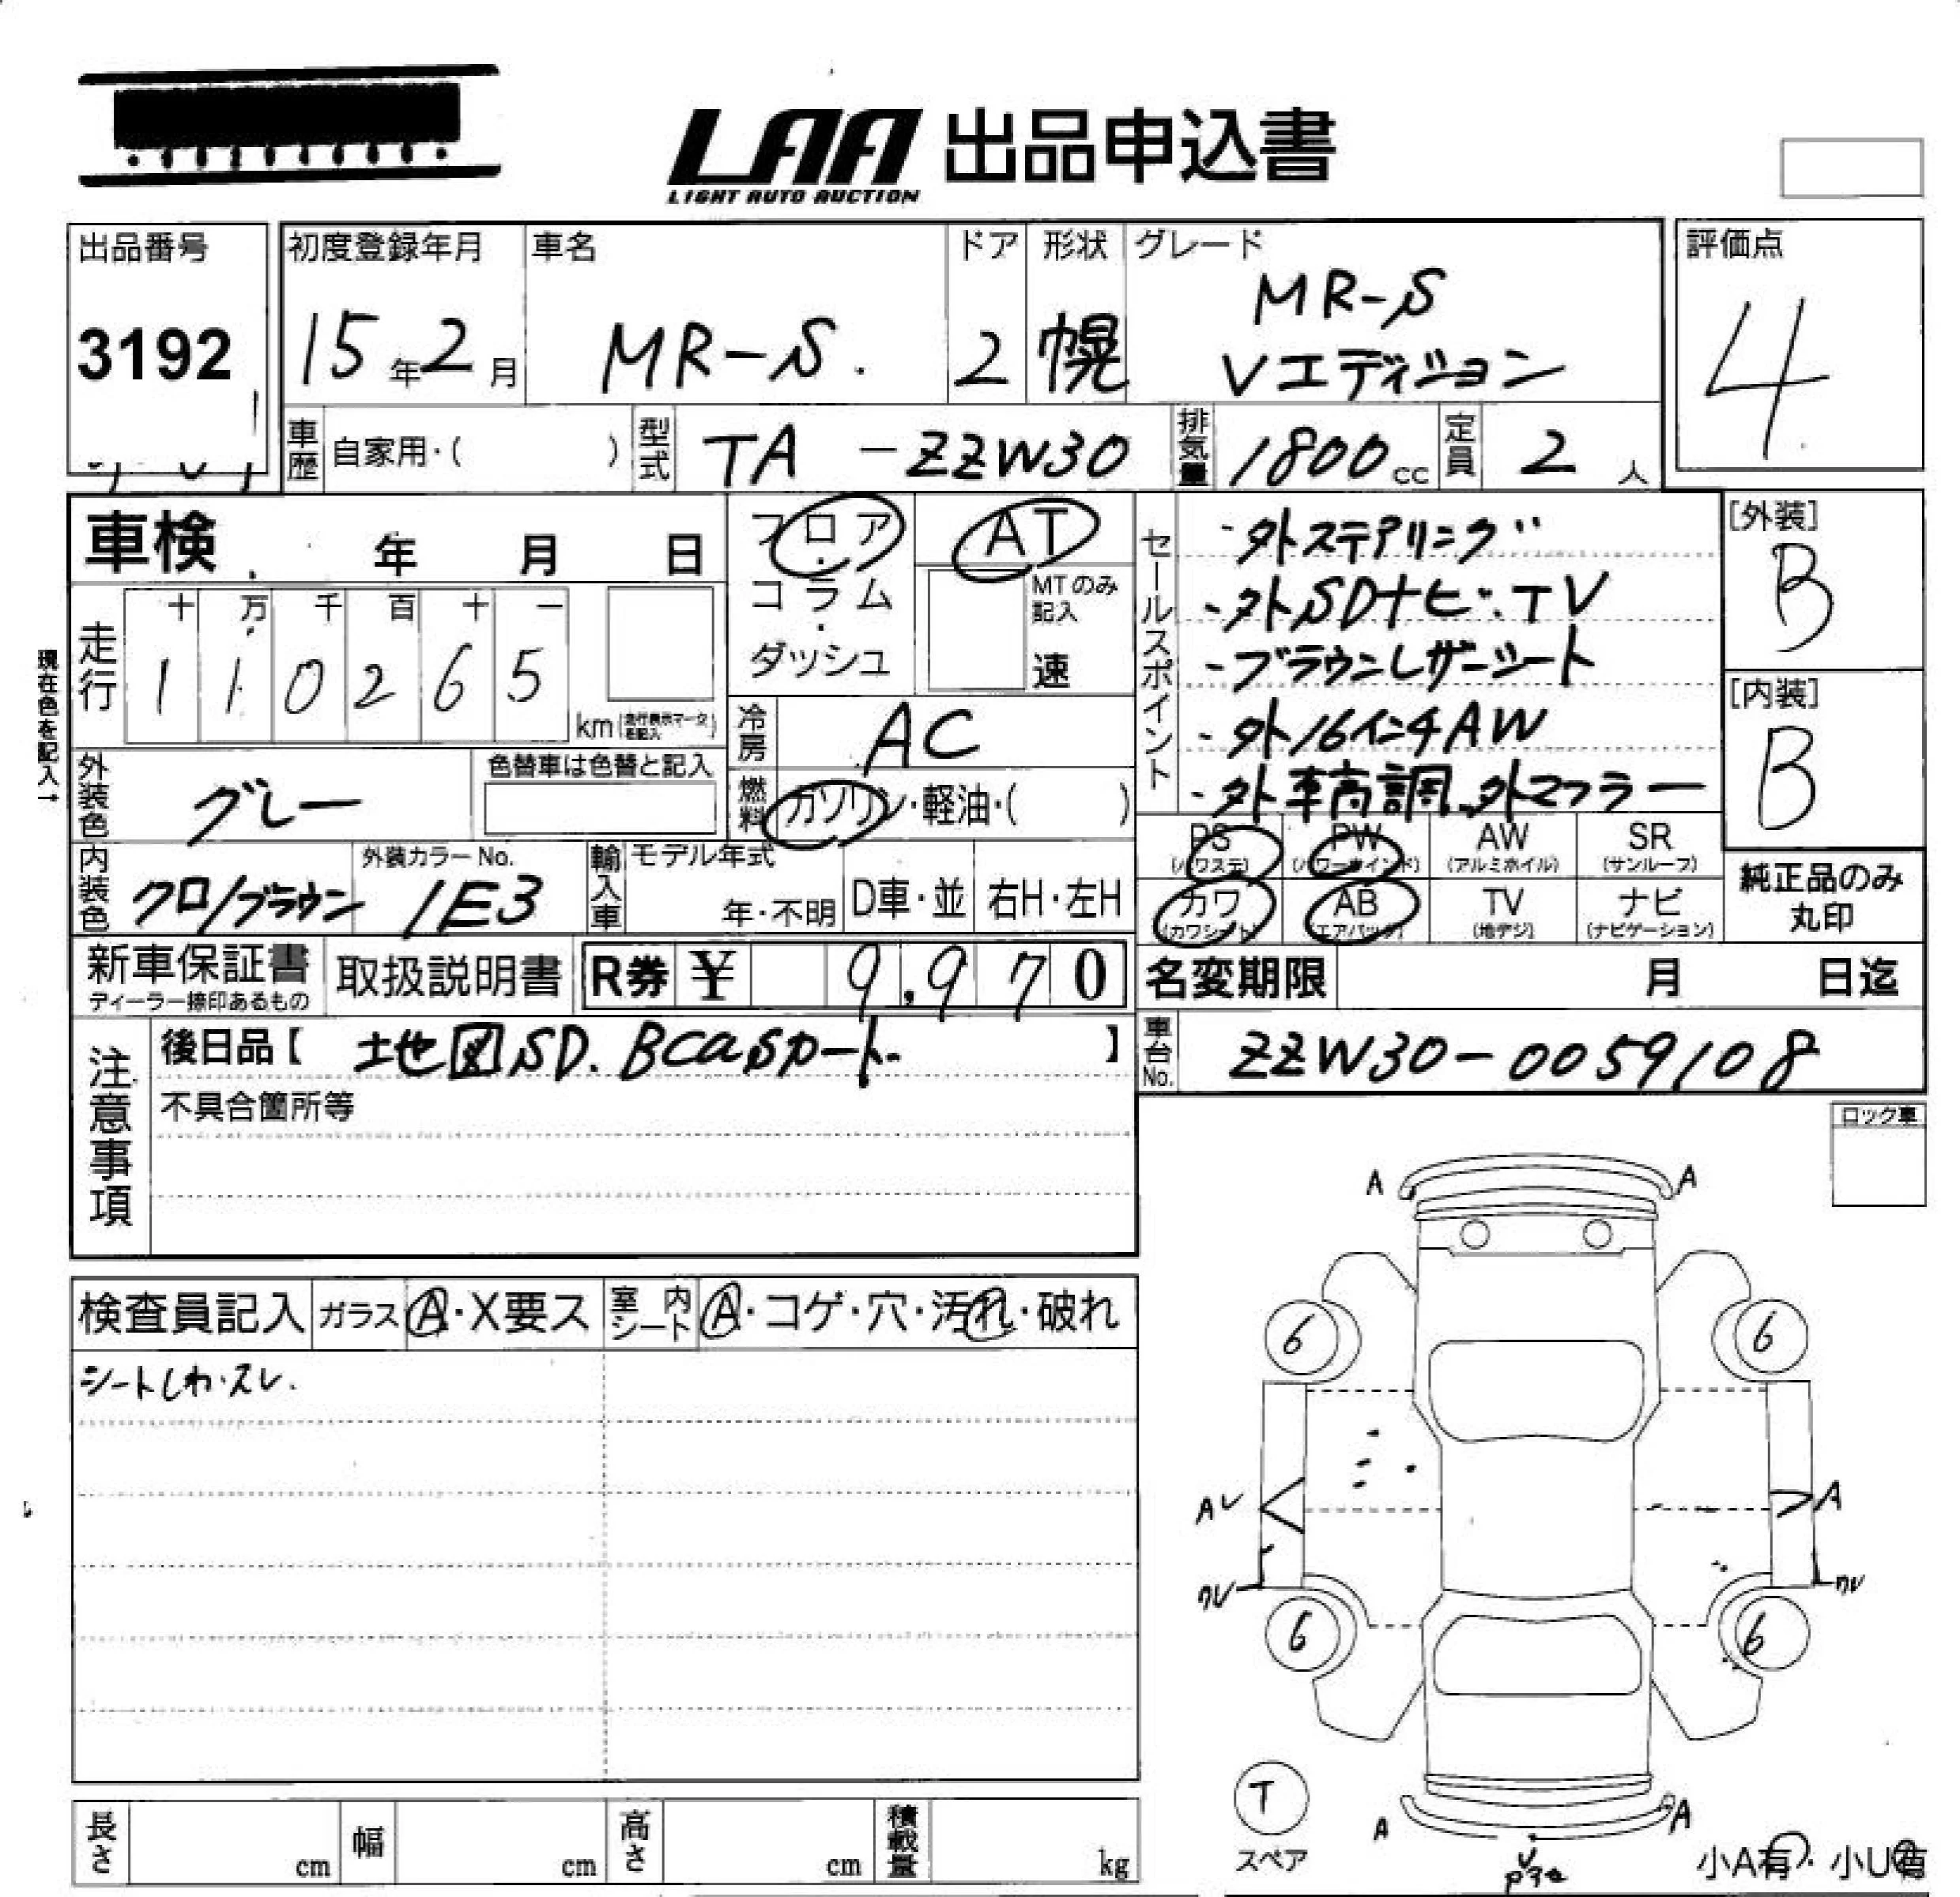 LAA 出品申込書
LIGHT AUTO AUCTION
出品番号
3192
初度登録年月
15年2月
車名
MR-S.
ドア
2
形状
幌
グレード
MR-S
Vエディション
評価点
4
車歴 自家用・( )
型式 TA-ZZW30
排気量 1800cc
定員 2人
車検 年 月 日
フロア・コラム・ダッシュ
AT
MTのみ記入
速
現在色を記入→
走行
十 万 千 百 十 一
1 1 0 2 6 5
km(走行表示マークを記入)
冷房 AC
燃料 ガソリン・軽油・( )
外装色 グレー
色替車は色替と記入
内装色 クロ/ブラウン
外装カラーNo.
1E3
輸入車 モデル年式
年・不明
D車・並
右H・左H
セールスポイント
・外ステアリング
・外SDナビ・TV
・ブラウンレザーシート
・外16インチAW
・外車高調、外マフラー
[外装]
B
[内装]
B
PS (パワステ)
PW (パワーウインド)
AW (アルミホイル)
SR (サンルーフ)
カワ (カワシート)
AB (エアバック)
TV (地デジ)
ナビ (ナビゲーション)
純正品のみ
丸印
新車保証書
ディーラー捺印あるもの
取扱説明書
R券 ¥ 9,970
名変期限 月 日迄
車台No. ZZW30-0059108
注意事項
後日品【 地図SD. BCaSカート. 】
不具合箇所等
ロック車
検査員記入
ガラス A・X要ス
室内シート A・コゲ・穴・汚れ・破れ
シートしわ・スレ.
A A
6 6
Aレ A
ワレ ワレ
6 6
T
スペア
A A
小A有・小U有
長さ cm
幅 cm
高さ cm
積載量 kg